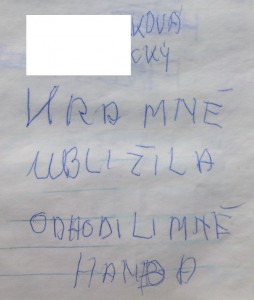 KOVA
CKÝ
KRD MNĚ
UBLIŽILA
ODHODILI MNĚ
HANBA